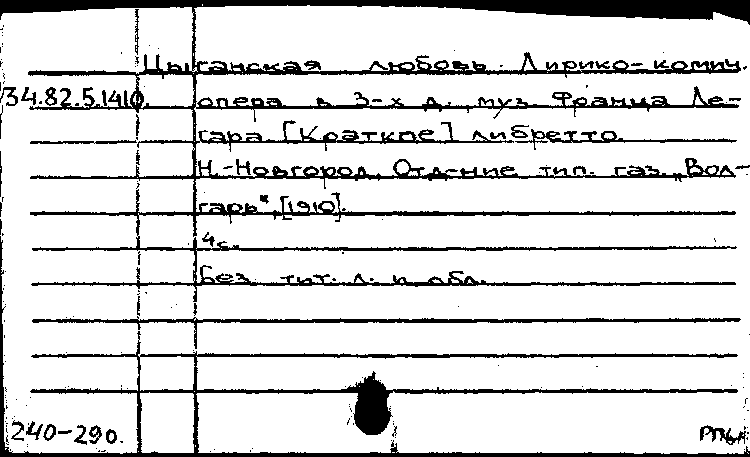 Цыганская любовь. Лирико-комич.
34.82.5.1410. опера в 3-х д., муз. Франца Ле-
гара [Краткое] либретто.
Н.-Новгород, Отд-ние тип. газ. „Вол-
гарь“, [1910].
4с.
Без тит. л. и обл.
240-290.